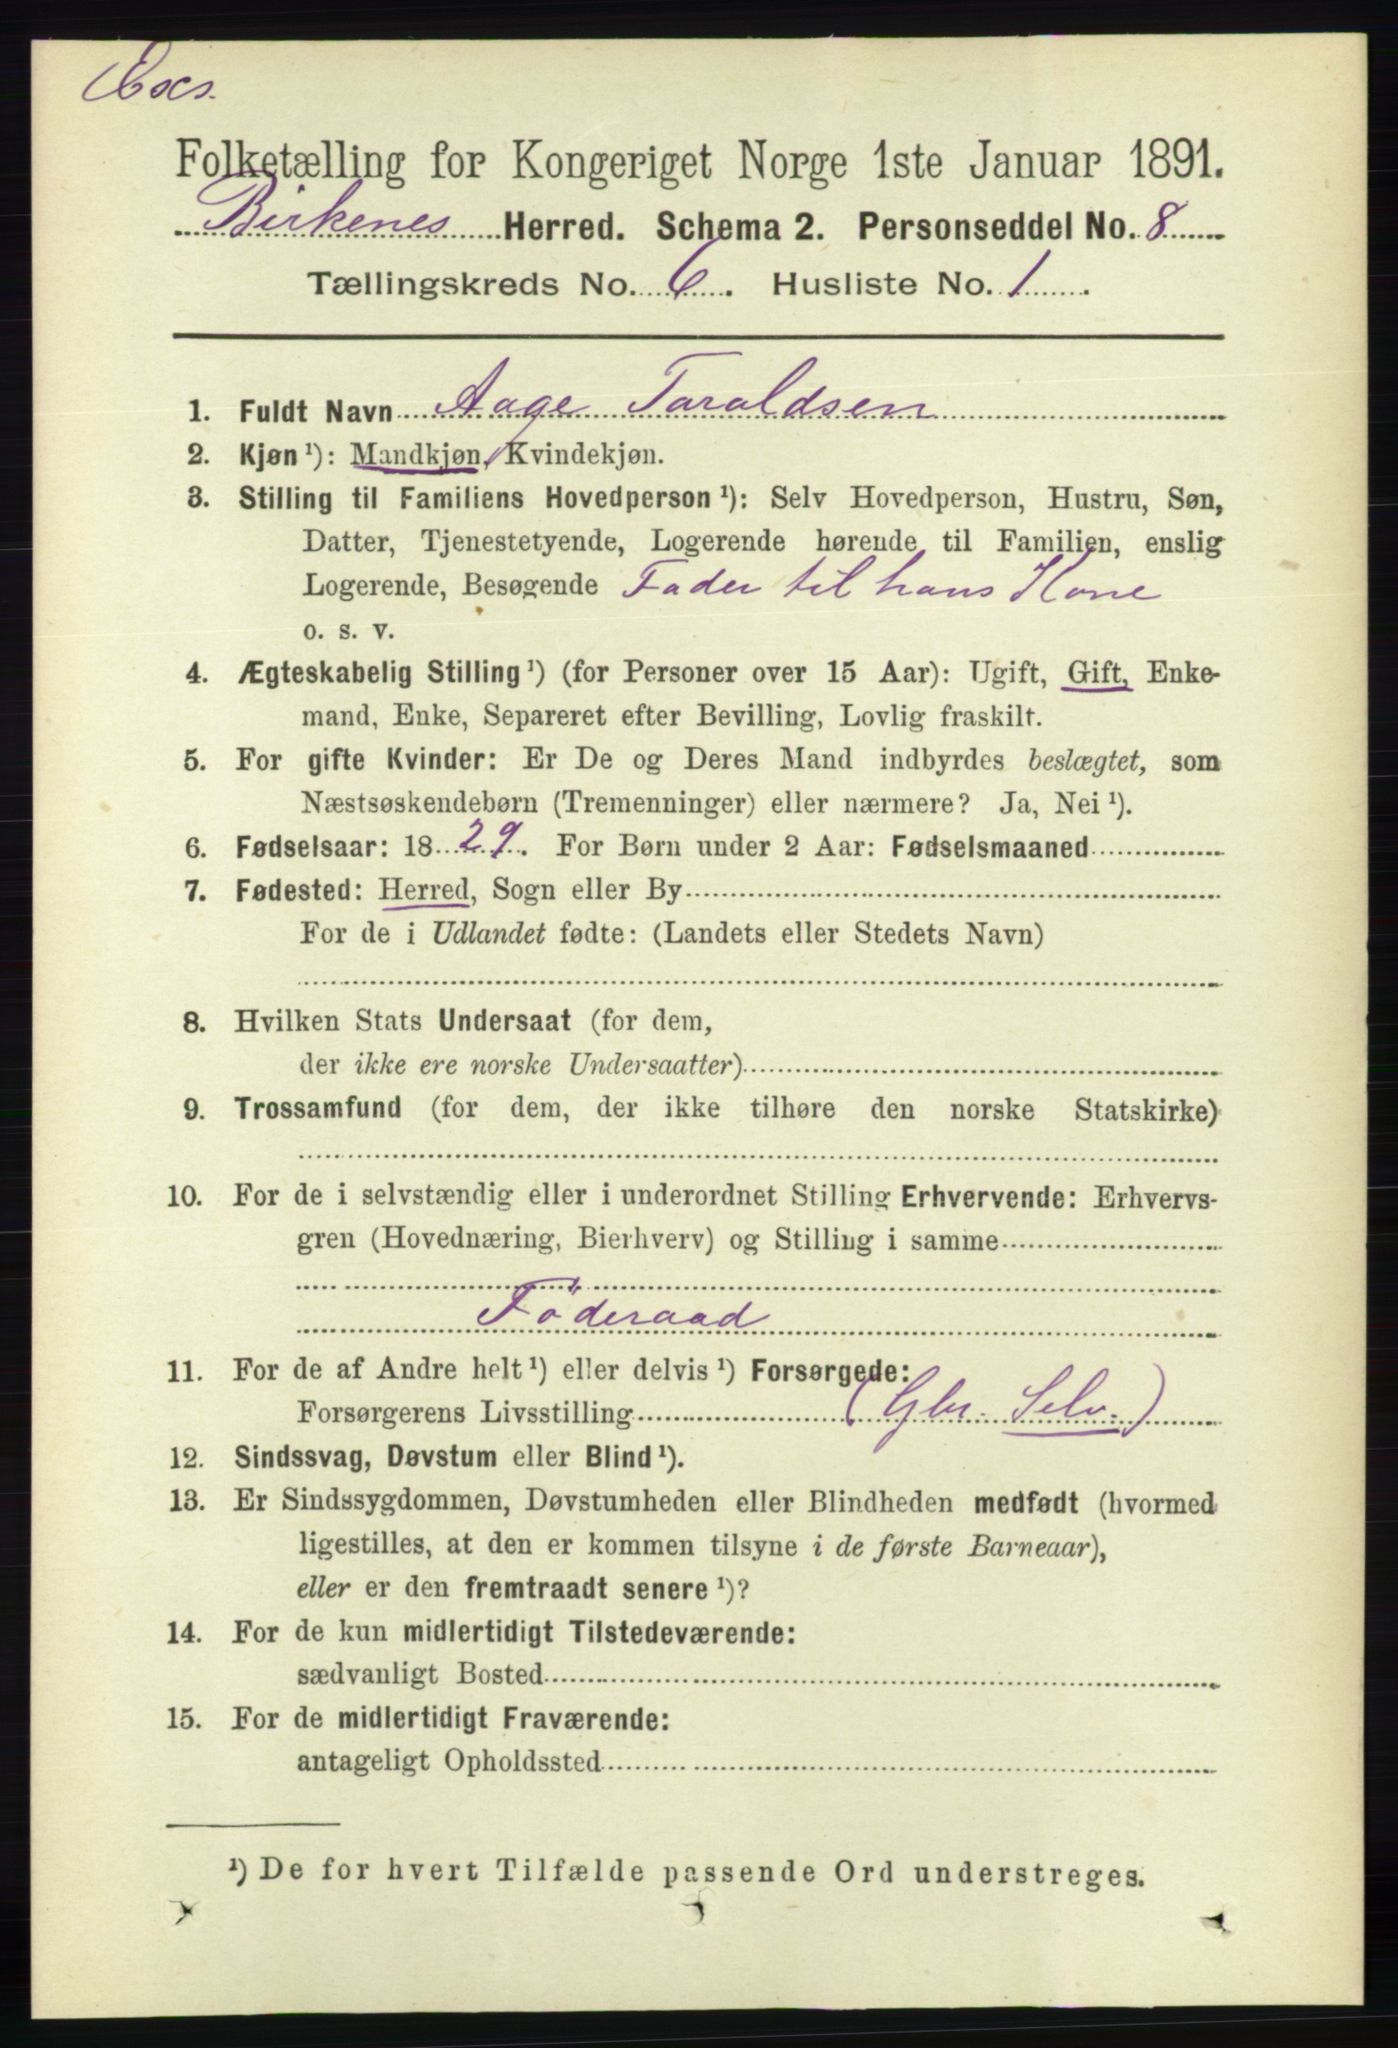 Folketælling for Kongeriget Norge 1ste Januar 1891.
Birkenes Herred. Schema 2. Personseddel No. 8
Tællingskreds No. 6. Husliste No. 1.
1. Fuldt Navn Aage Taraldsen
2. Kjøn ¹): Mandkjøn, Kvindekjøn.
3. Stilling til Familiens Hovedperson ¹): Selv Hovedperson, Hustru, Søn,
Datter, Tjenestetyende, Logerende hørende til Familien, enslig
Logerende, Besøgende Fader til hans Kone
o. s. v.
4. Ægteskabelig Stilling ¹) (for Personer over 15 Aar): Ugift, Gift, Enke-
mand, Enke, Separeret efter Bevilling, Lovlig fraskilt.
5. For gifte Kvinder: Er De og Deres Mand indbyrdes beslægtet, som
Næstsøskendebørn (Tremenninger) eller nærmere? Ja, Nei ¹).
6. Fødselsaar: 1829. For Børn under 2 Aar: Fødselsmaaned
7. Fødested: Herred, Sogn eller By
For de i Udlandet fødte: (Landets eller Stedets Navn)
8. Hvilken Stats Undersaat (for dem,
der ikke ere norske Undersaatter)
9. Trossamfund (for dem, der ikke tilhøre den norske Statskirke)
10. For de i selvstændig eller i underordnet Stilling Erhvervende: Erhvervs-
gren (Hovednæring, Bierhverv) og Stilling i samme
Föderaad
11. For de af Andre helt ¹) eller delvis ¹) Forsørgede:
Forsørgerens Livsstilling (Gbr. Selv.)
12. Sindssvag, Døvstum eller Blind ¹).
13. Er Sindssygdommen, Døvstumheden eller Blindheden medfødt (hvormed
ligestilles, at den er kommen tilsyne i de første Barneaar),
eller er den fremtraadt senere ¹)?
14. For de kun midlertidigt Tilstedeværende:
sædvanligt Bosted
15. For de midlertidigt Fraværende:
antageligt Opholdssted
¹) De for hvert Tilfælde passende Ord understreges.